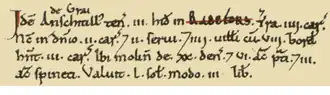 de Grai
Iđe Anschitill ten̄. III. hid in RADEFORS. Tr̄a. IIII. car̄.
Ne in dn̄io. II. car̄. 7 II. serui. 7 III. uilli cū. VIII. bord̄
hn̄t. III. car̄. Ibi molin̄ de. xx. den̄. 7 VI. ac̄ p̄ti. 7 III.
ac̄ spineæ. Valuit. L. sol̄. modo. III. lib̄.